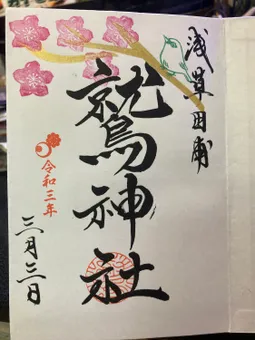 浅草田圃
鷲神社
令和三年
三月三日